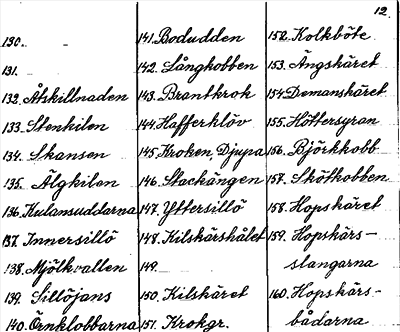 12.
130. -
131.
132. Åtskillnaden
133. Stenkilen
134. Skansen
135. Älgkilen
136. Kulansuddarna
137. Innersillö
138. Mjölkvallen
139. Sillöjans
140. Örnklobbarna
141. Bodudden
142. Långkobben
143. Brantkrok
144. Hafferklöv
145. Kroken, Djupa
146. Stackängen
147. Yttersillö
148. Kilskärshålet
149.
150. Kilskäret
151. Krokgr.
152. Kolkböte
153. Ängskäret
154. Demanskäret
155. Höttersyran
156. Björkkobb
157. Skötkobben
158. Hopskäret
159. Hopskärs-
slangarna
160. Hopskärs-
bådarna